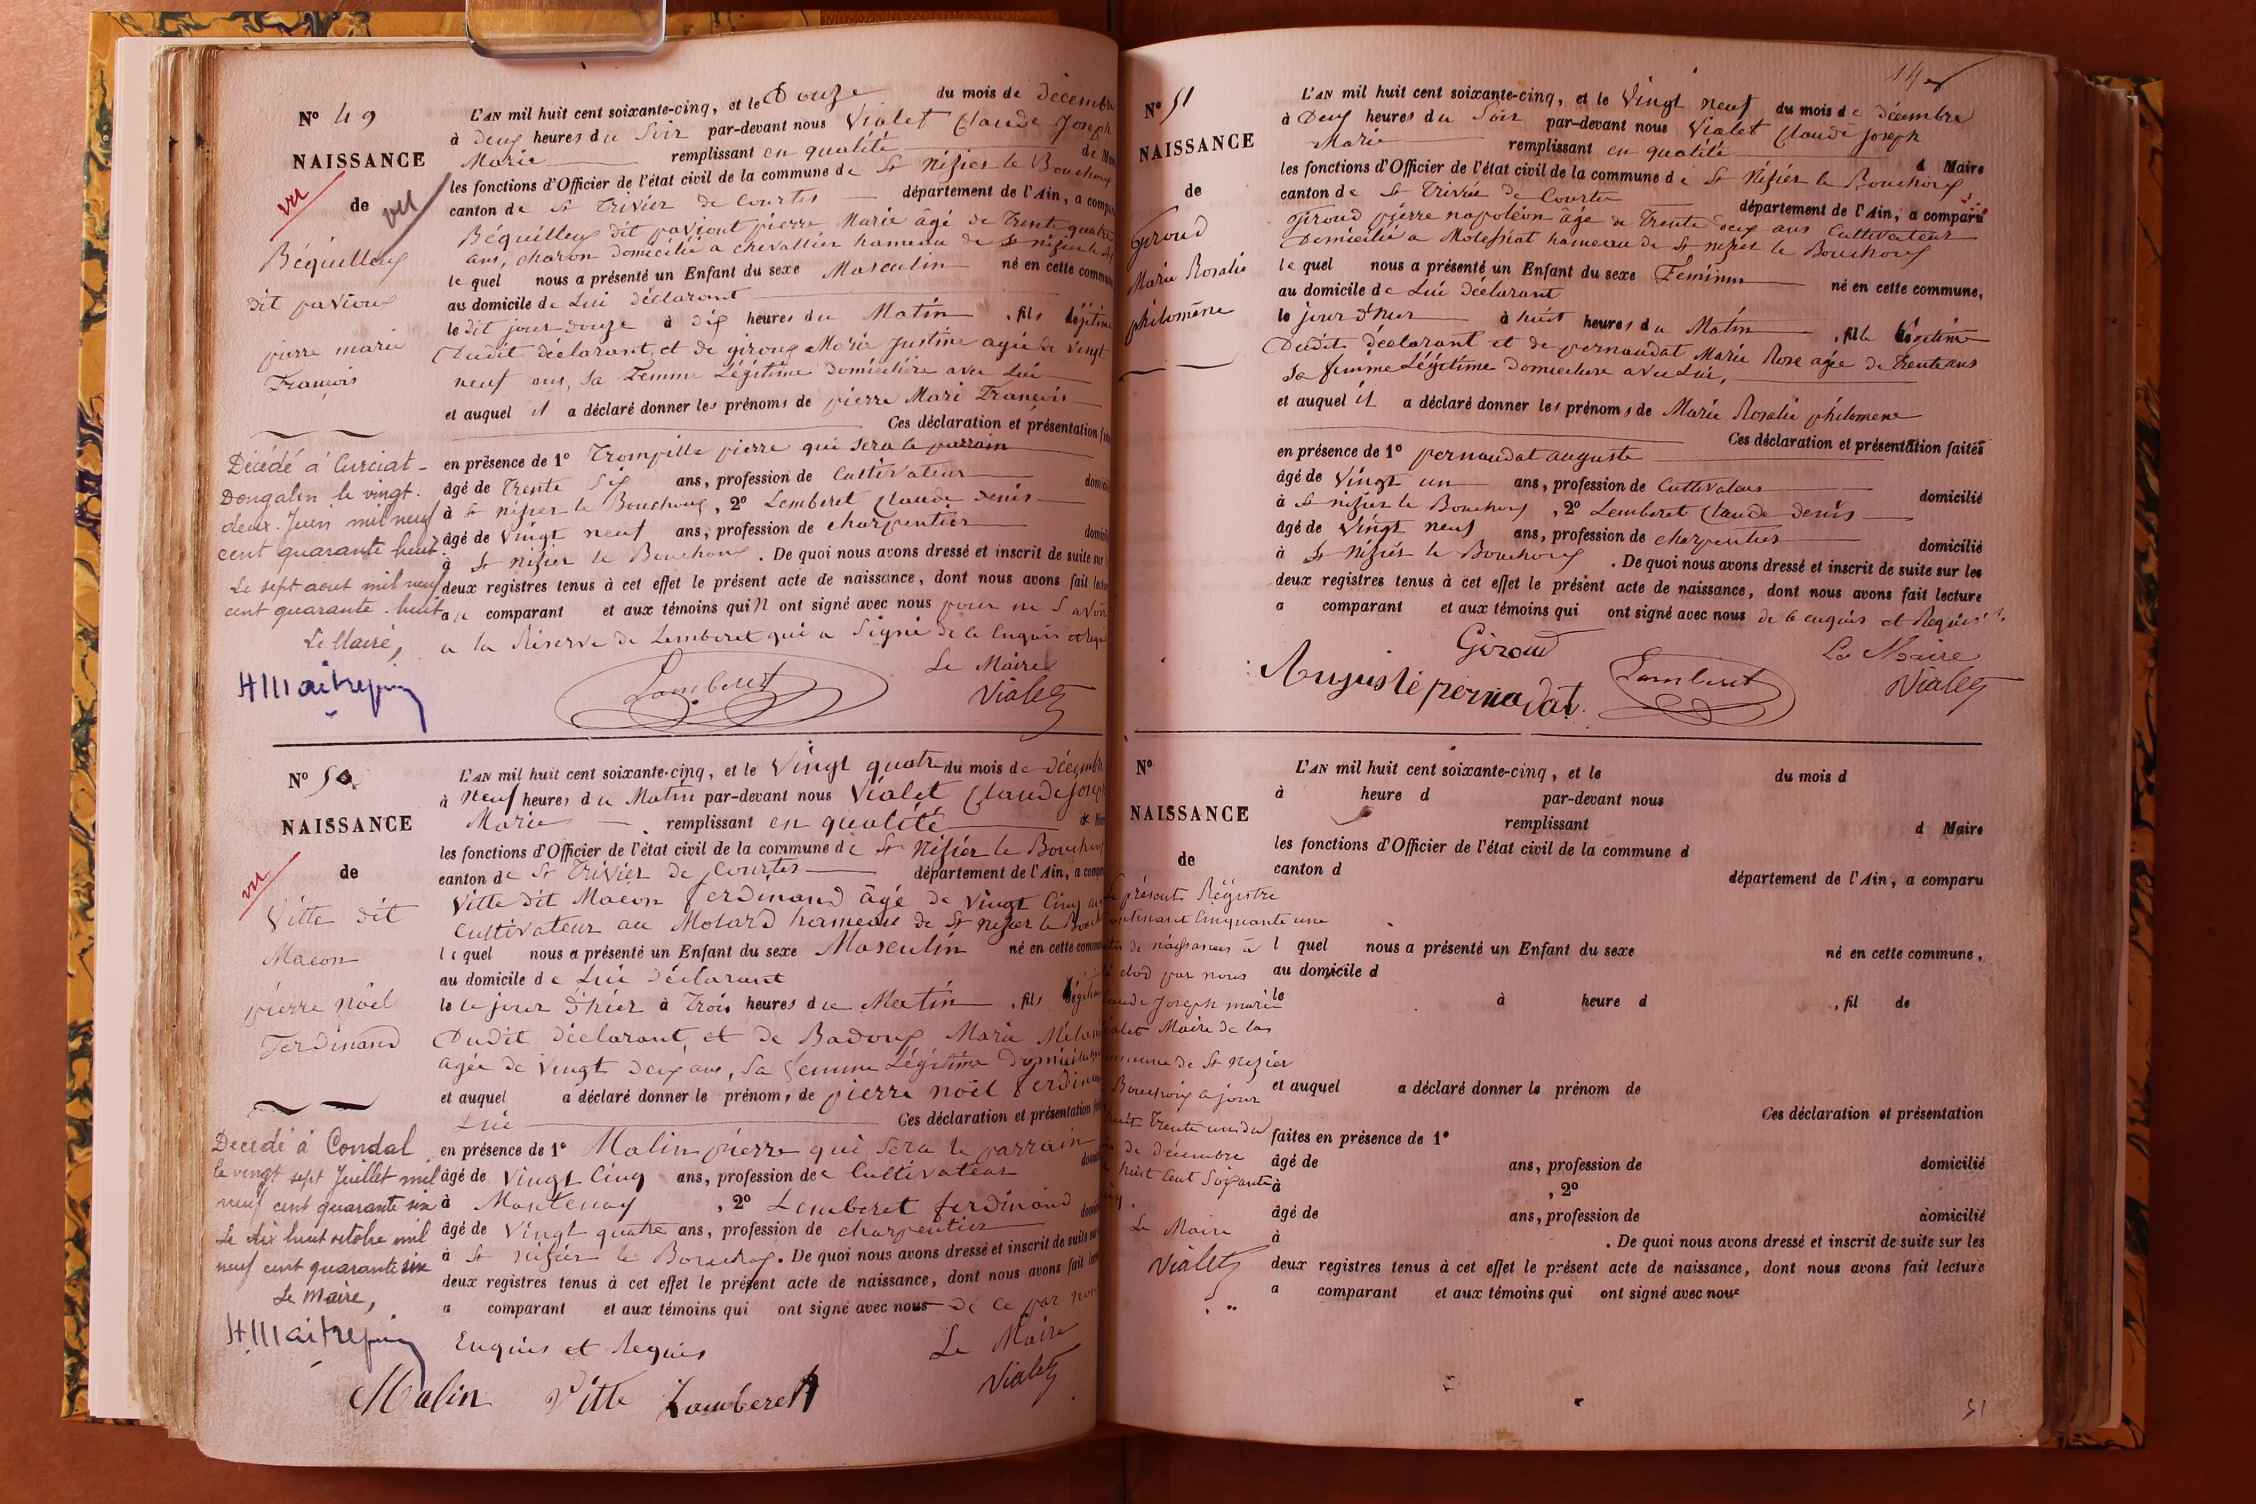 N° 49
NAISSANCE
vu
de
vu
Béquilleux
dit pavioux
pierre marie
François
Décédé à Curciat-
Dongalon le vingt-
deux Juin mil neuf
cent quarante huit.
Le sept aout mil neuf
cent quarante-huit
Le Maire,
L'AN mil huit cent soixante-cinq, et le Douze du mois de décembre
à deux heures du Soir par-devant nous Vialet Claude Joseph
Marie remplissant en qualité de
les fonctions d'Officier de l'état civil de la commune de St Nizier le Bouchoux
canton de St Trivier de Courtes département de l'Ain, a comparu
Béquilleux dit pavioux pierre Marie âgé de Trente quatre
ans, charon domicilié a chevallier hameau de St nizier le
le quel nous a présenté un Enfant du sexe Masculin né en cette commune
au domicile de Lui déclarant
le dit jour douze à dix heures du Matin , fils légitime
Dudit déclarant, et de giroux Marie Justine agée de vingt
neuf ans, Sa Femme Légitime domiciliée avec Lui
et auquel il a déclaré donner les prénoms de pierre Mari François
Ces déclaration et présentation
en présence de 1° Trompille pierre qui sera le parrain
âgé de Trente Six ans, profession de Cultivateur
à St nizier le Bouchoux, 2° Lemberet Claude Denis
âgé de Vingt neuf ans, profession de charpentier
à St nizier le Bouchoux. De quoi nous avons dressé et inscrit de suite sur
deux registres tenus à cet effet le présent acte de naissance, dont nous avons fait lecture
au comparant et aux témoins qui n ont signé avec nous pour ne Savoir
a la Réserve de Lemberet qui a Signé de ce Enquis et
Lamberet
Le Maire
Vialet
N° 50
NAISSANCE
vu
de
Vitte dit
Macon
pierre Noël
Ferdinand
Decédé à Condal
le vingt sept Juillet mil
neuf cent quarante six
Le dix huit octobre mil
neuf cent quarante six
Le Maire,
L'AN mil huit cent soixante-cinq, et le Vingt quatre du mois de décembre
à Neuf heures du Matin par-devant nous Vialet Claude Joseph
Marie remplissant en qualité de
les fonctions d'Officier de l'état civil de la commune de St Nizier le Bouchoux
canton de St Trivier de Courtes département de l'Ain, a
Vitte dit Macon ferdinand âgé de Vingt Cinq ans
Cultivateur au Molard hameau de St nizier le
le quel nous a présenté un Enfant du sexe Masculin né en cette commune
au domicile de Lui déclarant
le le jour d'hier à Trois heures du Matin , fils légitime
Dudit déclarant, et de Badoux Marie
agée de Vingt deux ans, Sa femme Légitime
et auquel a déclaré donner le prénoms de pierre noël ferdinand
Lui Ces déclaration et présentation
en présence de 1° Malin pierre qui Sera le parrain
âgé de Vingt Cinq ans, profession de Cultivateur
à Mantenay , 2° Lemberet ferdinand
âgé de Vingt quatre ans, profession de charpentier
à St nizier le Bouchoux. De quoi nous avons dressé et inscrit de suite
deux registres tenus à cet effet le présent acte de naissance, dont nous avons fait
a comparant et aux témoins qui ont signé avec nous de ce par
Enquis et Requis
Le Maire
Malin Vitte Lamberet Vialet
14
N° 51
NAISSANCE
de
Giroud
Marie Rosalie
philomène
L'AN mil huit cent soixante-cinq, et le Vingt neuf du mois de décembre
à Deux heures du Soir par-devant nous Vialet Claude Joseph
Marie remplissant en qualité d Maire
les fonctions d'Officier de l'état civil de la commune de St Nizier le Bouchoux
canton de St Trivier de Courtes département de l'Ain, a comparu
Giroud pierre napoléon âge de Trente deux ans Cultivateur
Domicilié a Molessiat hameau de St nizier le Bouchoux
le quel nous a présenté un Enfant du sexe Féminin né en cette commune,
au domicile de Lui déclarant
le jour d'hier à huit heures du Matin , fille légitime
Dudit déclarant et de pernaudat Marie Rose agée de trente ans
Sa femme Légitime domiciliée avec Lui,
et auquel il a déclaré donner les prénoms de Marie Rosalie philomene
Ces déclaration et présentation faites
en présence de 1° pernaudat auguste
âgé de Vingt un ans, profession de Cultivateur domicilié
à St nizier le Bouchoux, 2° Lemberet Claude denis
âgé de Vingt neuf ans, profession de charpentier domicilié
à St Nizier le Bouchoux. De quoi nous avons dressé et inscrit de suite sur les
deux registres tenus à cet effet le présent acte de naissance, dont nous avons fait lecture
a comparant et aux témoins qui ont signé avec nous de ce enquis et Requis
Giroud
Le Maire
Auguste pernadat Lamberet Vialet
N°
NAISSANCE
de
présent Régistre
contenant Cinquante une
de naissances a
clos par nous
Claude Joseph marie
Vialet Maire de la
commune de St Nizier
Bouchoux a jour
Trente un du
de décembre
huit Cent Soixante
Le Maire
Vialet
L'AN mil huit cent soixante-cinq, et le du mois d
à heure d par-devant nous
remplissant d Maire
les fonctions d'Officier de l'état civil de la commune d
canton d département de l'Ain, a comparu
l quel nous a présenté un Enfant du sexe né en cette commune,
au domicile d
le à heure d , fil de
et auquel a déclaré donner le prénom de
Ces déclaration et présentation
faites en présence de 1°
âgé de ans, profession de domicilié
à , 2°
âgé de ans, profession de domicilié
à . De quoi nous avons dressé et inscrit de suite sur les
deux registres tenus à cet effet le présent acte de naissance, dont nous avons fait lecture
a comparant et aux témoins qui ont signé avec nous
51